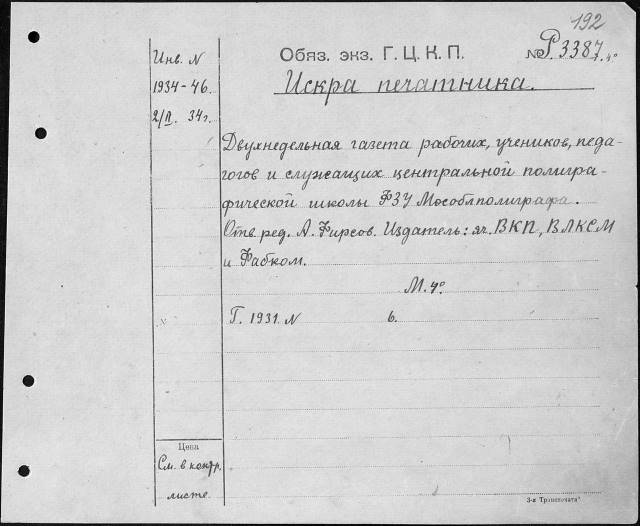 192
Обяз. экз. Г.Ц.К.П.
№ Р.3387 г.4°
Искра печатника.
Инв. N
1934-46.
2/II. 34г.
Двухнедельная газета рабочих, учеников, педа-
гогов и служащих центральной полигра-
фической школы ФЗУ Мособлполиграфа.
Отв. ред. А. Фирсов. Издатель: яч. ВКП, ВЛКСМ
и Фабком.
М. 4°.
Г. 1931. N 6.
Цена
См. в контр.
листе.
3-я Транспечать